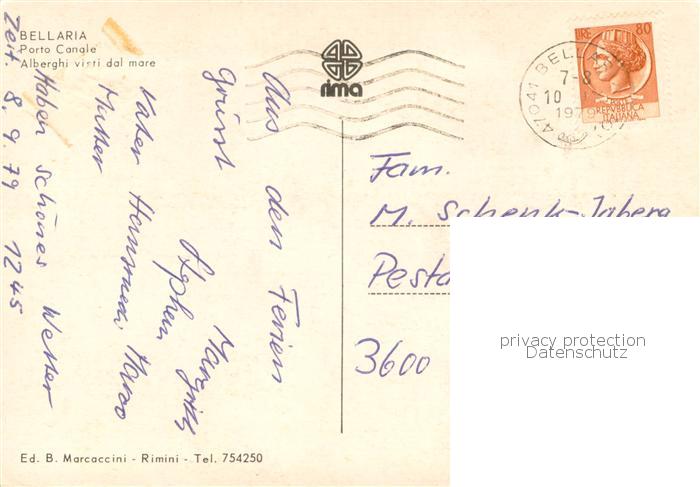 BELLARIA
Porto Canale
Alberghi visti dal mare
rima
LIRE 80
POSTE
REPVBBLICA
ITALIANA
47041 BELLARIA
7-8
10
1979
Aus den Ferien
grüsst
Margrith
Stephan
Vater Hansruedi, Marco
Mutter
Haben schönes Wetter
Zeit. 8.9.79 1245
Fam.
M. Schenk-Jaberg
3600
privacy protection
Datenschutz
Ed. B. Marcaccini - Rimini - Tel. 754250